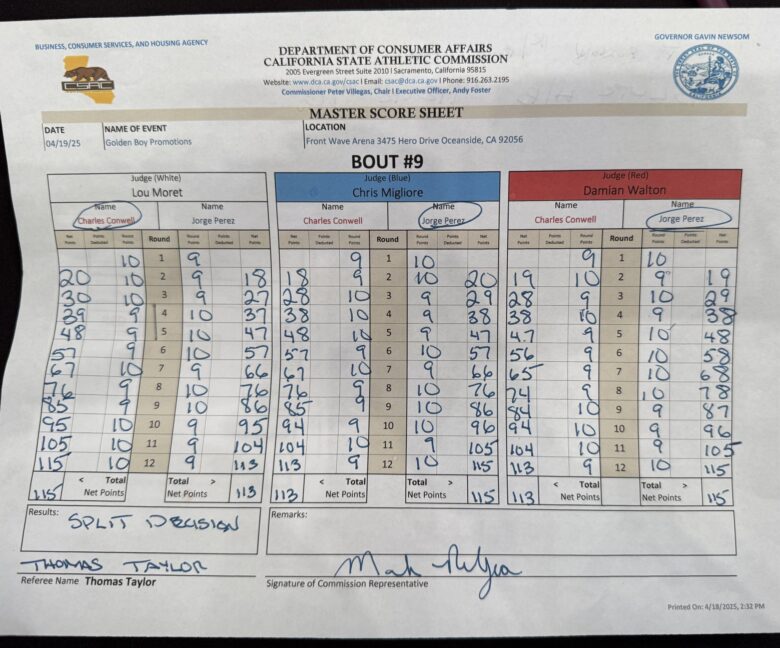 BUSINESS, CONSUMER SERVICES, AND HOUSING AGENCY
GOVERNOR GAVIN NEWSOM
CSAC
DEPARTMENT OF CONSUMER AFFAIRS
CALIFORNIA STATE ATHLETIC COMMISSION
2005 Evergreen Street Suite 2010 | Sacramento, California 95815
Website: www.dca.ca.gov/csac | Email: csac@dca.ca.gov | Phone: 916.263.2195
Commissioner Peter Villegas, Chair | Executive Officer, Andy Foster
MASTER SCORE SHEET
DATE NAME OF EVENT LOCATION
04/19/25 Golden Boy Promotions Front Wave Arena 3475 Hero Drive Oceanside, CA 92056
BOUT #9
Judge (White) Judge (Blue) Judge (Red)
Lou Moret Chris Migliore Damian Walton
Name Name Name Name Name Name
Charles Conwell Jorge Perez Charles Conwell Jorge Perez Charles Conwell Jorge Perez
Net Points Points Deducted Round Points Round Round Points Points Deducted Net Points Net Points Points Deducted Round Points Round Round Points Points Deducted Net Points Net Points Points Deducted Round Points Round Round Points Points Deducted Net Points
10 1 9 9 1 10 9 1 10
20 10 2 9 18 18 9 2 10 20 19 10 2 9 19
30 10 3 9 27 28 10 3 9 29 28 9 3 10 29
39 9 4 10 37 38 10 4 9 38 38 10 4 9 38
48 9 5 10 47 48 10 5 9 47 47 9 5 10 48
57 9 6 10 57 57 9 6 10 57 56 9 6 10 58
67 10 7 9 66 67 10 7 9 66 65 9 7 10 68
76 9 8 10 76 76 9 8 10 76 74 9 8 10 78
85 9 9 10 86 85 9 9 10 86 84 10 9 9 87
95 10 10 9 95 94 9 10 10 96 94 10 10 9 96
105 10 11 9 104 104 10 11 9 105 104 10 11 9 105
115 10 12 9 113 113 9 12 10 115 113 9 12 10 115
< Total Total > < Total Total > < Total Total >
115 Net Points Net Points 113 113 Net Points Net Points 115 113 Net Points Net Points 115
Results: SPLIT DECISION
Remarks:
THOMAS TAYLOR
Referee Name Thomas Taylor
Signature of Commission Representative
Printed On: 4/18/2025, 2:32 PM